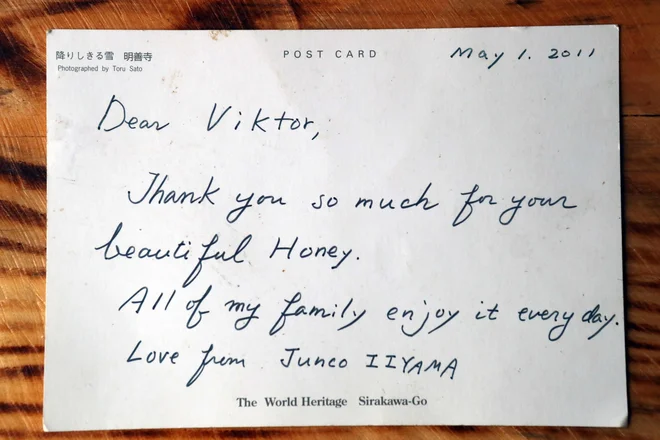 降りしきる雪 明善寺
Photographed by Toru Sato
POST CARD
May 1. 2011
Dear Viktor,
Thank you so much for your
beautiful Honey.
All of my family enjoy it every day.
Love from Junco IIYAMA
The World Heritage Sirakawa-Go